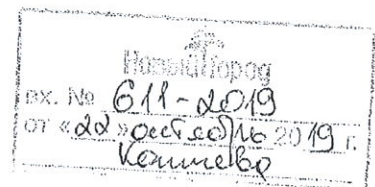 Новый Город
вх. № 611-2019
от «22» октября 2019 г.